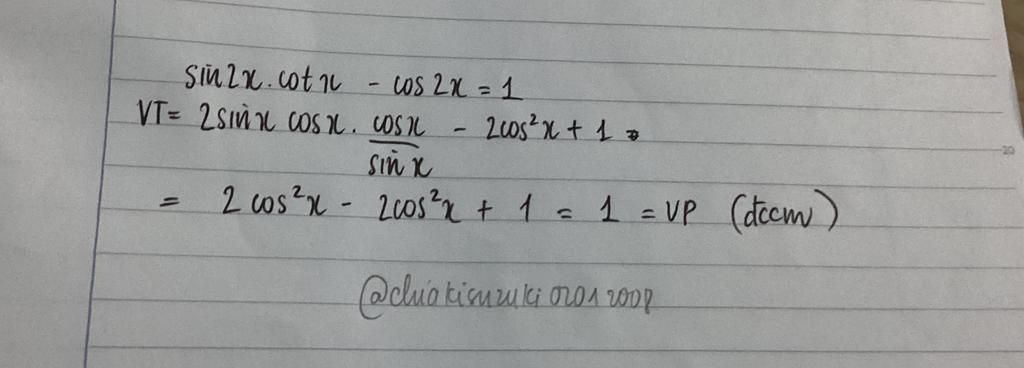 sin2x.cotx - cos2x = 1
VT= 2sinx cosx. cosx/sinx - 2cos²x + 1
= 2cos²x - 2cos²x + 1 = 1 = VP (đccm)
@chiakisuzuki02012008
20